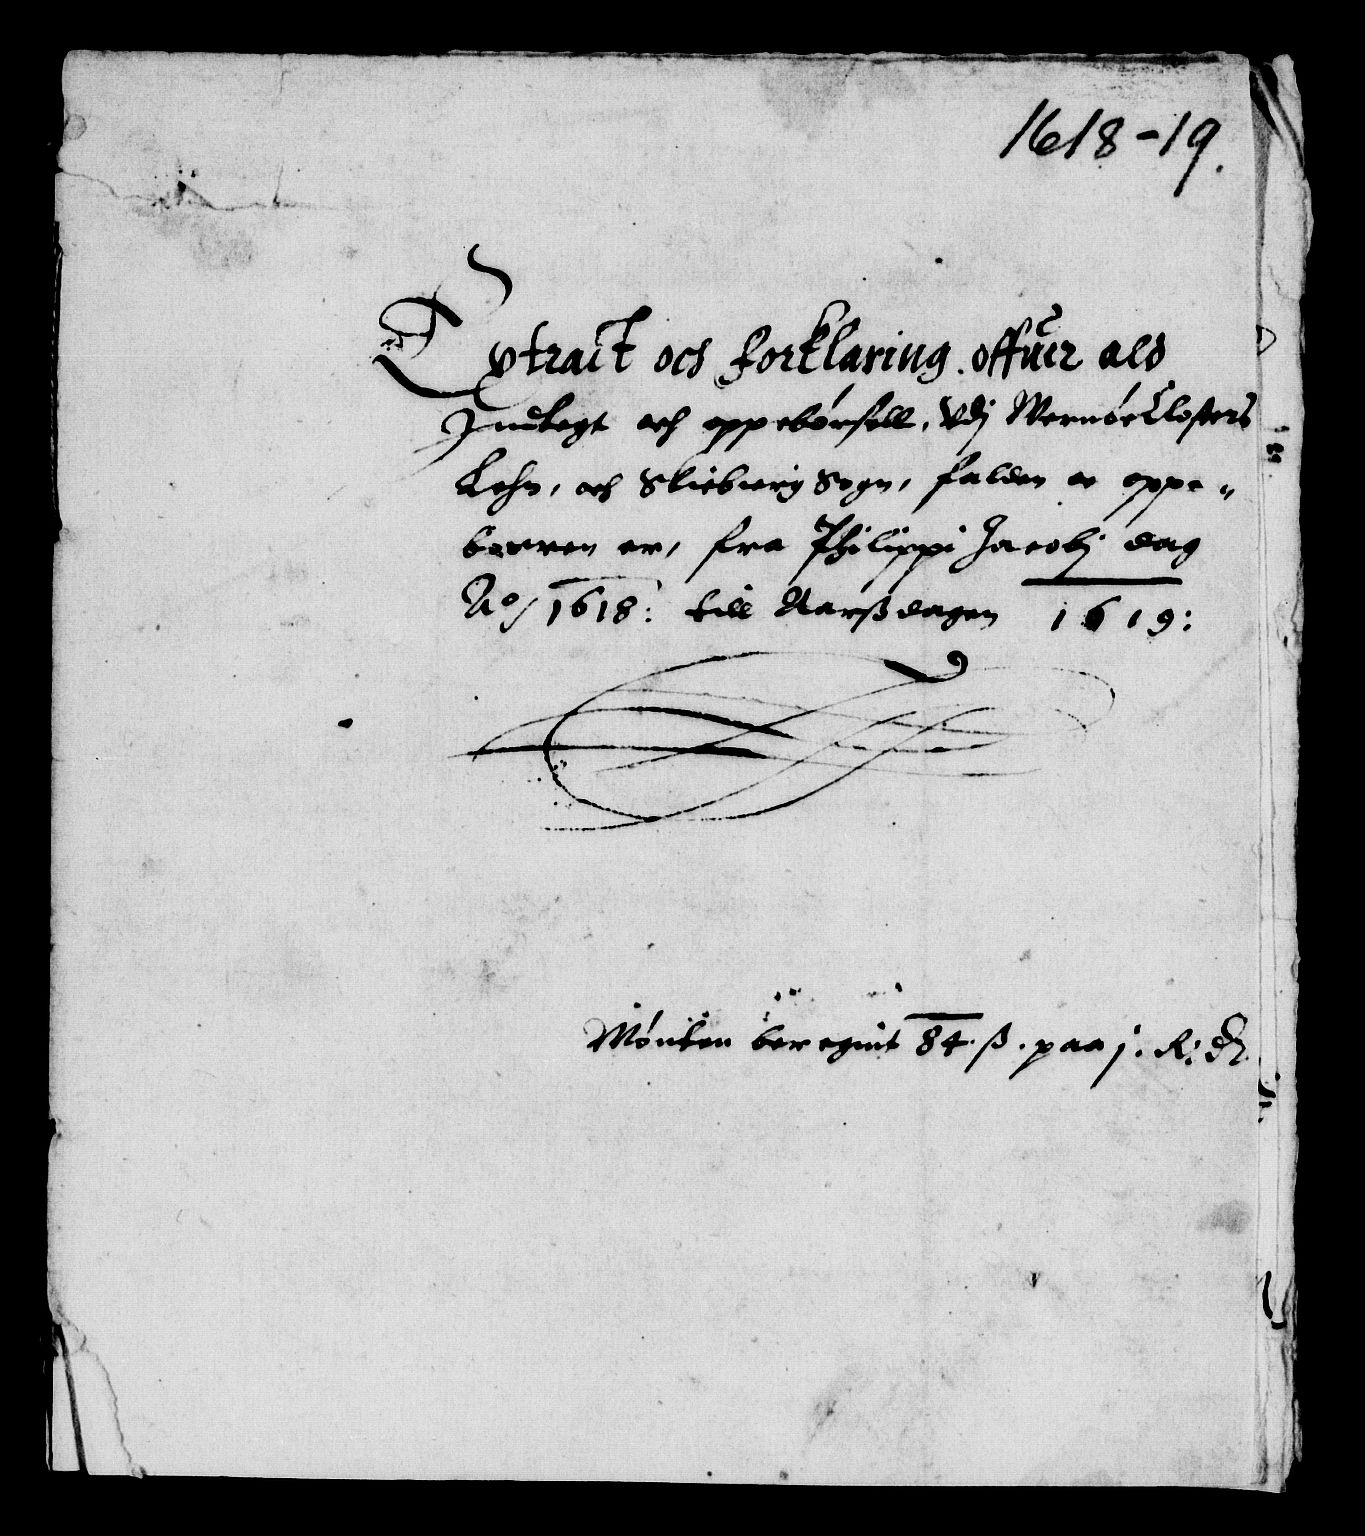 1618-19.
Extract och forklaring offuer ald
Indtegt och oppebørsell, Vdj Wernøe Closters
Lehn, och Skiebierg Sogn, falden oc oppe„
baarren er, fra Philippi Jacobj dag
Ao/ 1618: till Aarsdagen 1619:
Mønten beregnit 84 ß. paa j. R: dr